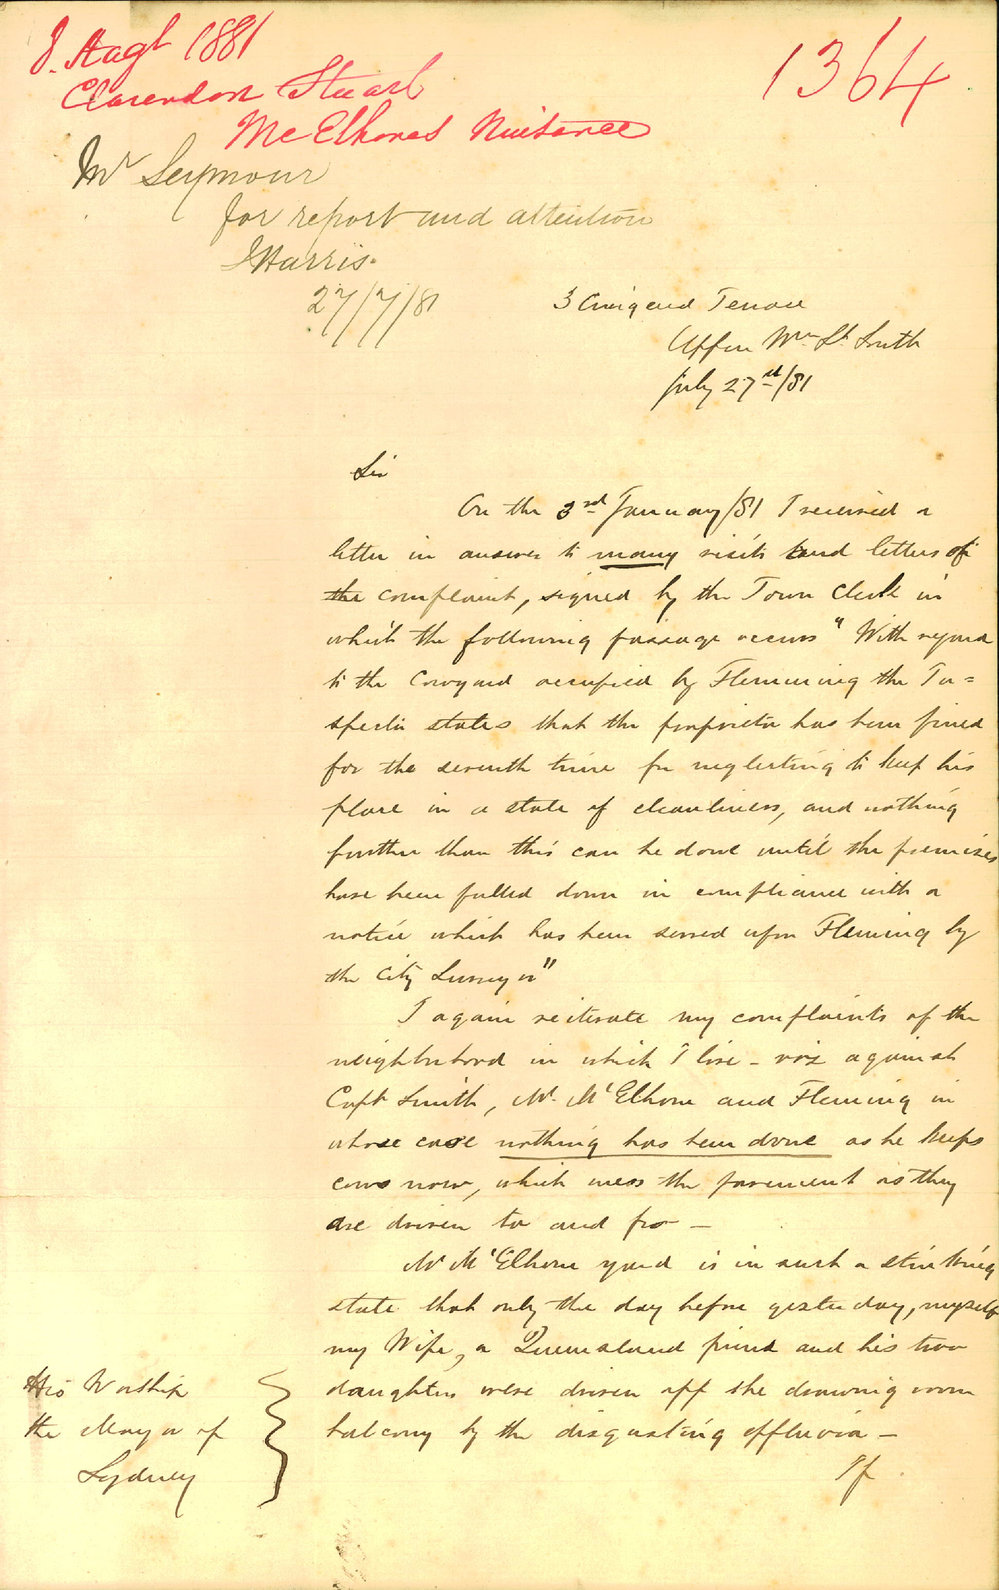 8. Augt 1881
1364
Clarendon Stuart
McElhones Nuisance
Mr Seymour
for report and attention
J Harris.
27/7/81
3 Craigend Terrace
Upper Wm St South
July 27th/81
Sir
On the 3rd January/81 I received a
letter in answer to many visits and letters of
the complaint, signed by the Town Clerk in
which the following passage occurs "With regard
to the Cowyard occupied by Flemming the In=
spector states that the proprietor has been fined
for the seventh time for neglecting to keep his
place in a state of cleanliness, and nothing
further than this can be done until the premises
have been pulled down in compliance with a
notice which has been served upon Fleming by
the City Surveyor"
I again reiterate my complaints of the
neighborhood in which I live - viz against
Capt Smith, Mr McElhone and Fleming in
whose case nothing has been done as he keeps
cows now, which mess the pavement as they
are driven to and fro -
Mr McElhone yard is in such a stinking
state that only the day before yesterday, myself
my Wife, a Queensland friend and his two
daughters were driven off the drawing room
balcony by the disgusting effluvia -
If
His Worship
the Mayor of
Sydney